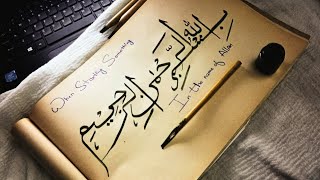 When Starting Something
بسم الله الرحمن الرحيم
In the name of Allah